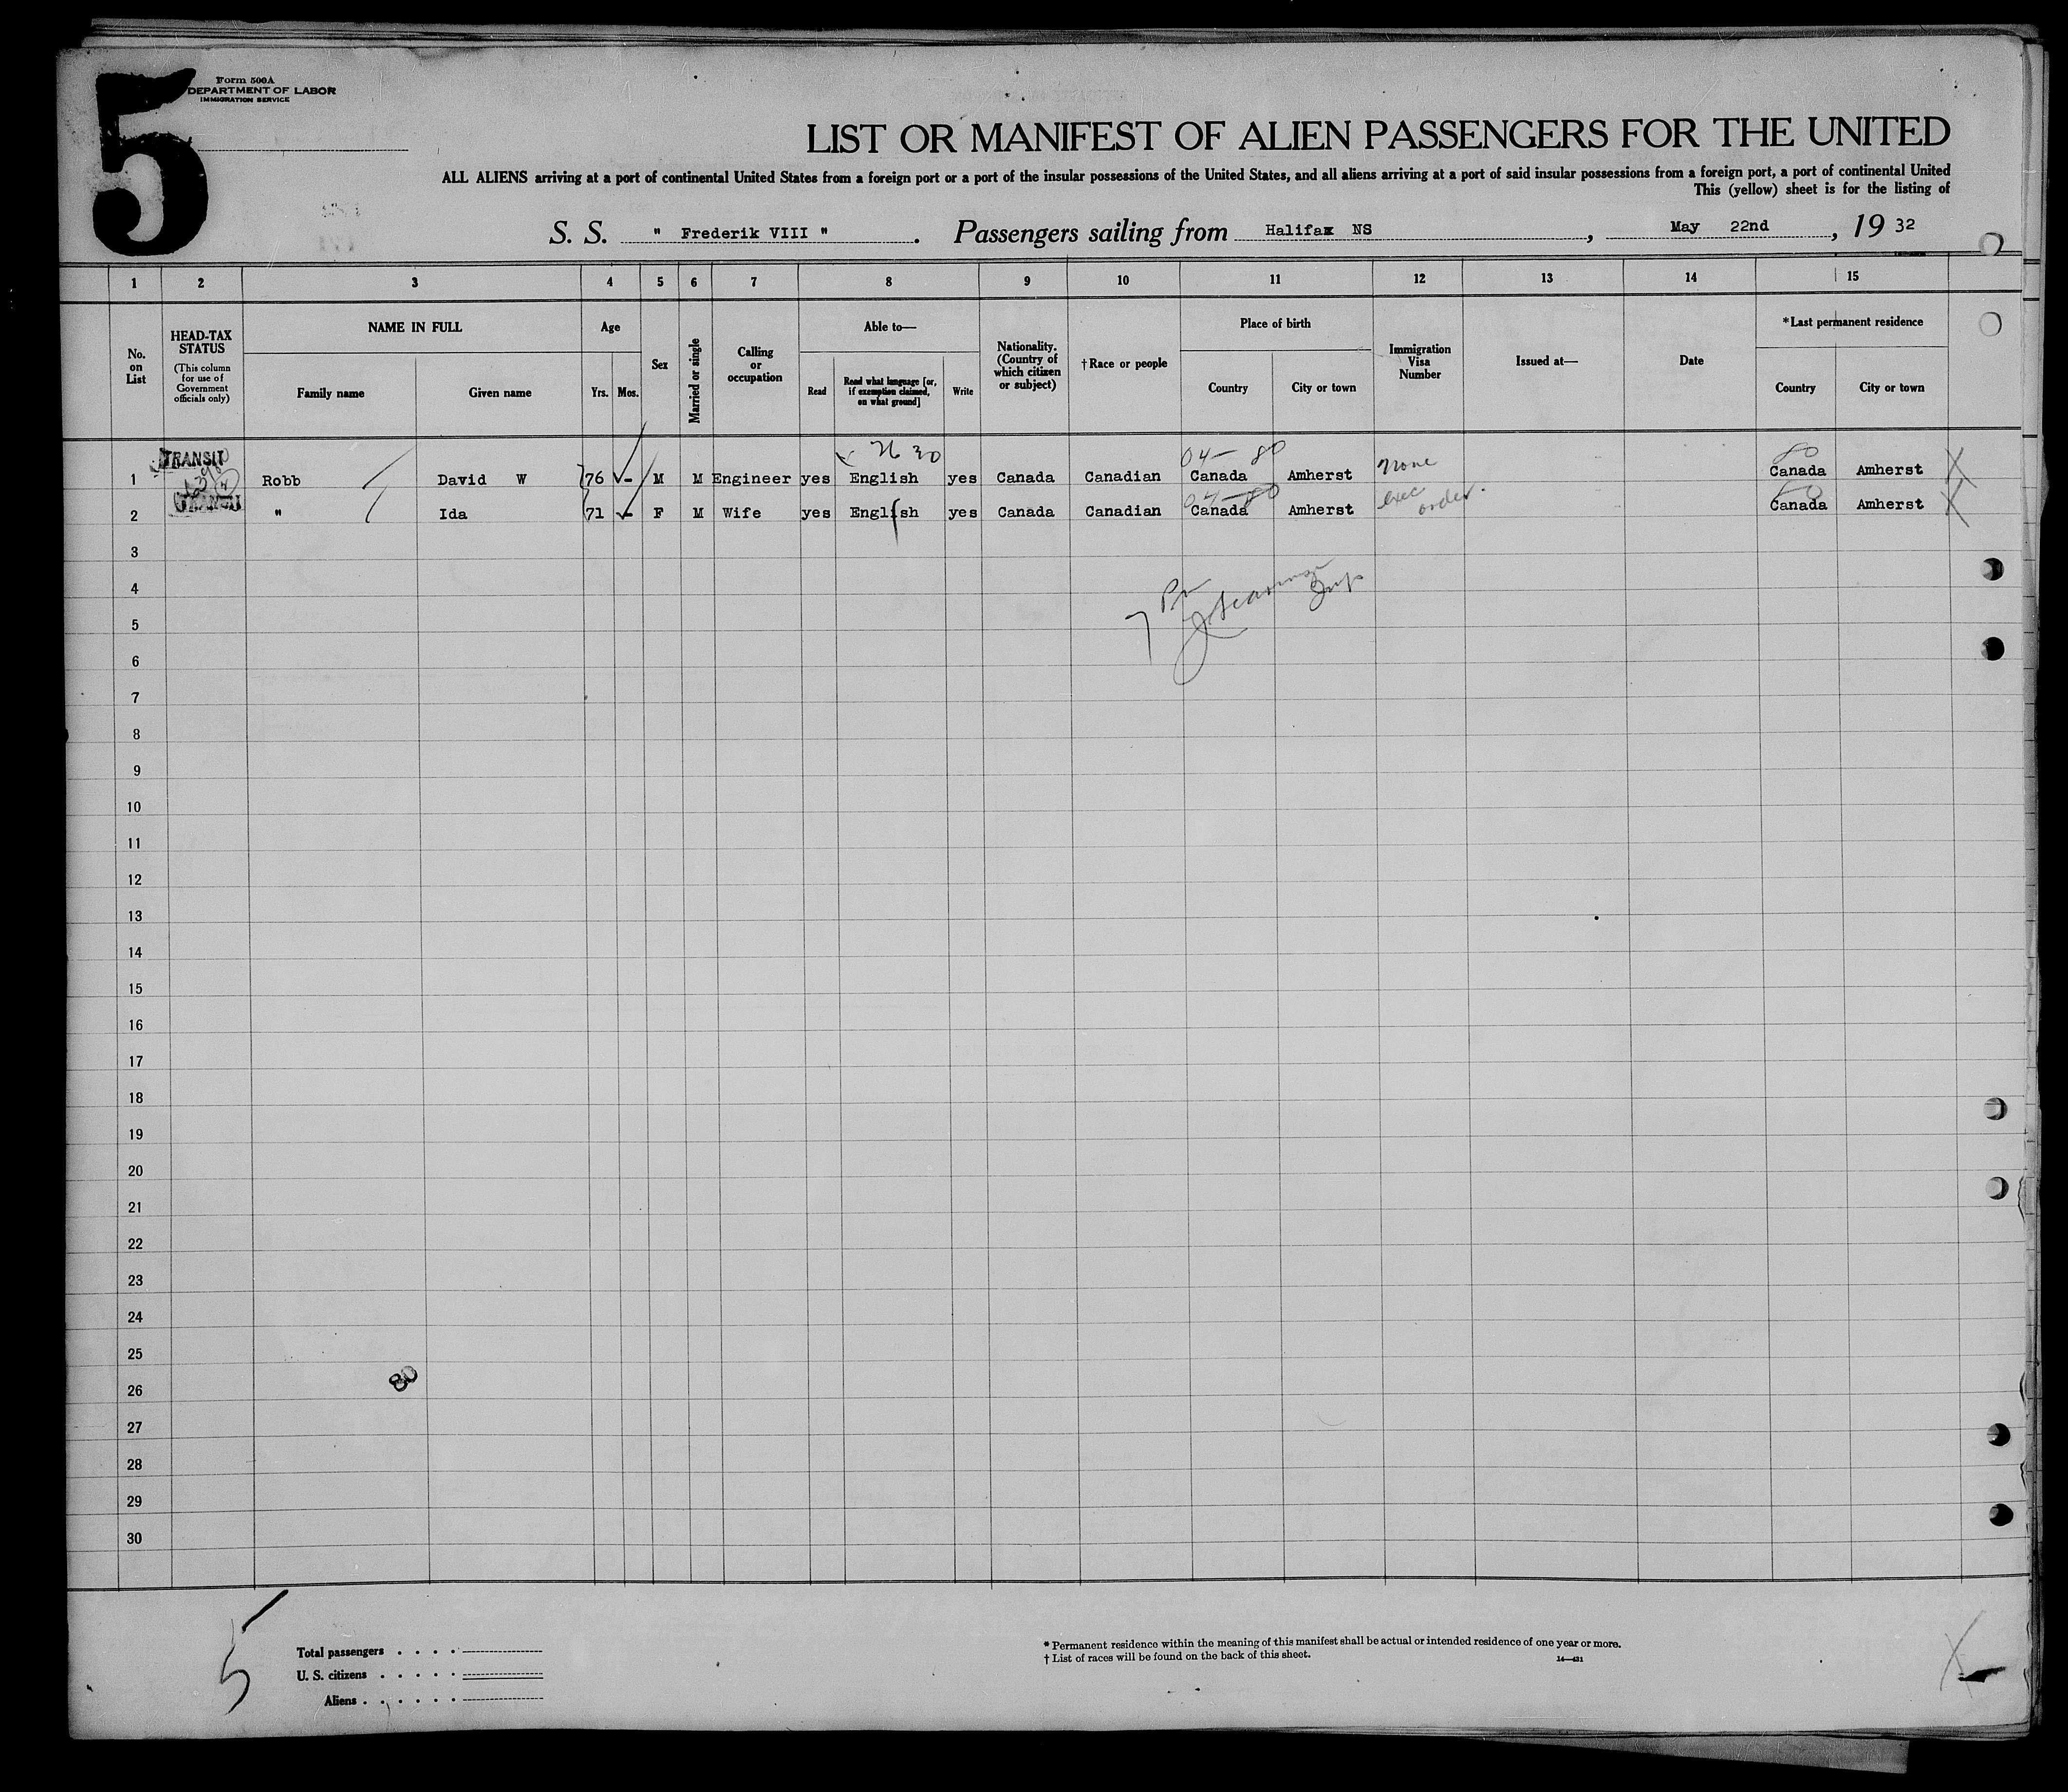 5
Form 500A
DEPARTMENT OF LABOR
IMMIGRATION SERVICE
LIST OR MANIFEST OF ALIEN PASSENGERS FOR THE UNITED
ALL ALIENS arriving at a port of continental United States from a foreign port or a port of the insular possessions of the United States, and all aliens arriving at a port of said insular possessions from a foreign port, a port of continental United
This (yellow) sheet is for the listing of
S. S. " Frederik VIII ". Passengers sailing from Halifax NS, May 22nd, 19 32
1 2 3 4 5 6 7 8 9 10 11 12 13 14 15
No. on List
HEAD-TAX STATUS
(This column for use of Government officials only)
NAME IN FULL
Family name Given name
Age
Yrs. Mos.
Sex
Married or single
Calling or occupation
Able to—
Read
Read what language [or, if exemption claimed, on what ground]
Write
Nationality. (Country of which citizen or subject)
†Race or people
Place of birth
Country City or town
Immigration Visa Number
Issued at—
Date
*Last permanent residence
Country City or town
TRANSIT 26 30 04— 80 80
1 Robb David W 76 - M M Engineer yes English yes Canada Canadian Canada Amherst none Canada Amherst
TRANSIT 04—80
2 " Ida 71 - F M Wife yes English yes Canada Canadian Canada Amherst exec order. Canada Amherst
3
4
5
6
7
8
9
10
11
12
13
14
15
16
17
18
19
20
21
22
23
24
25
80
26
27
28
29
30
5
Total passengers . . . .
U. S. citizens . . . . .
Aliens . . . . . .
* Permanent residence within the meaning of this manifest shall be actual or intended residence of one year or more.
† List of races will be found on the back of this sheet.
14—431